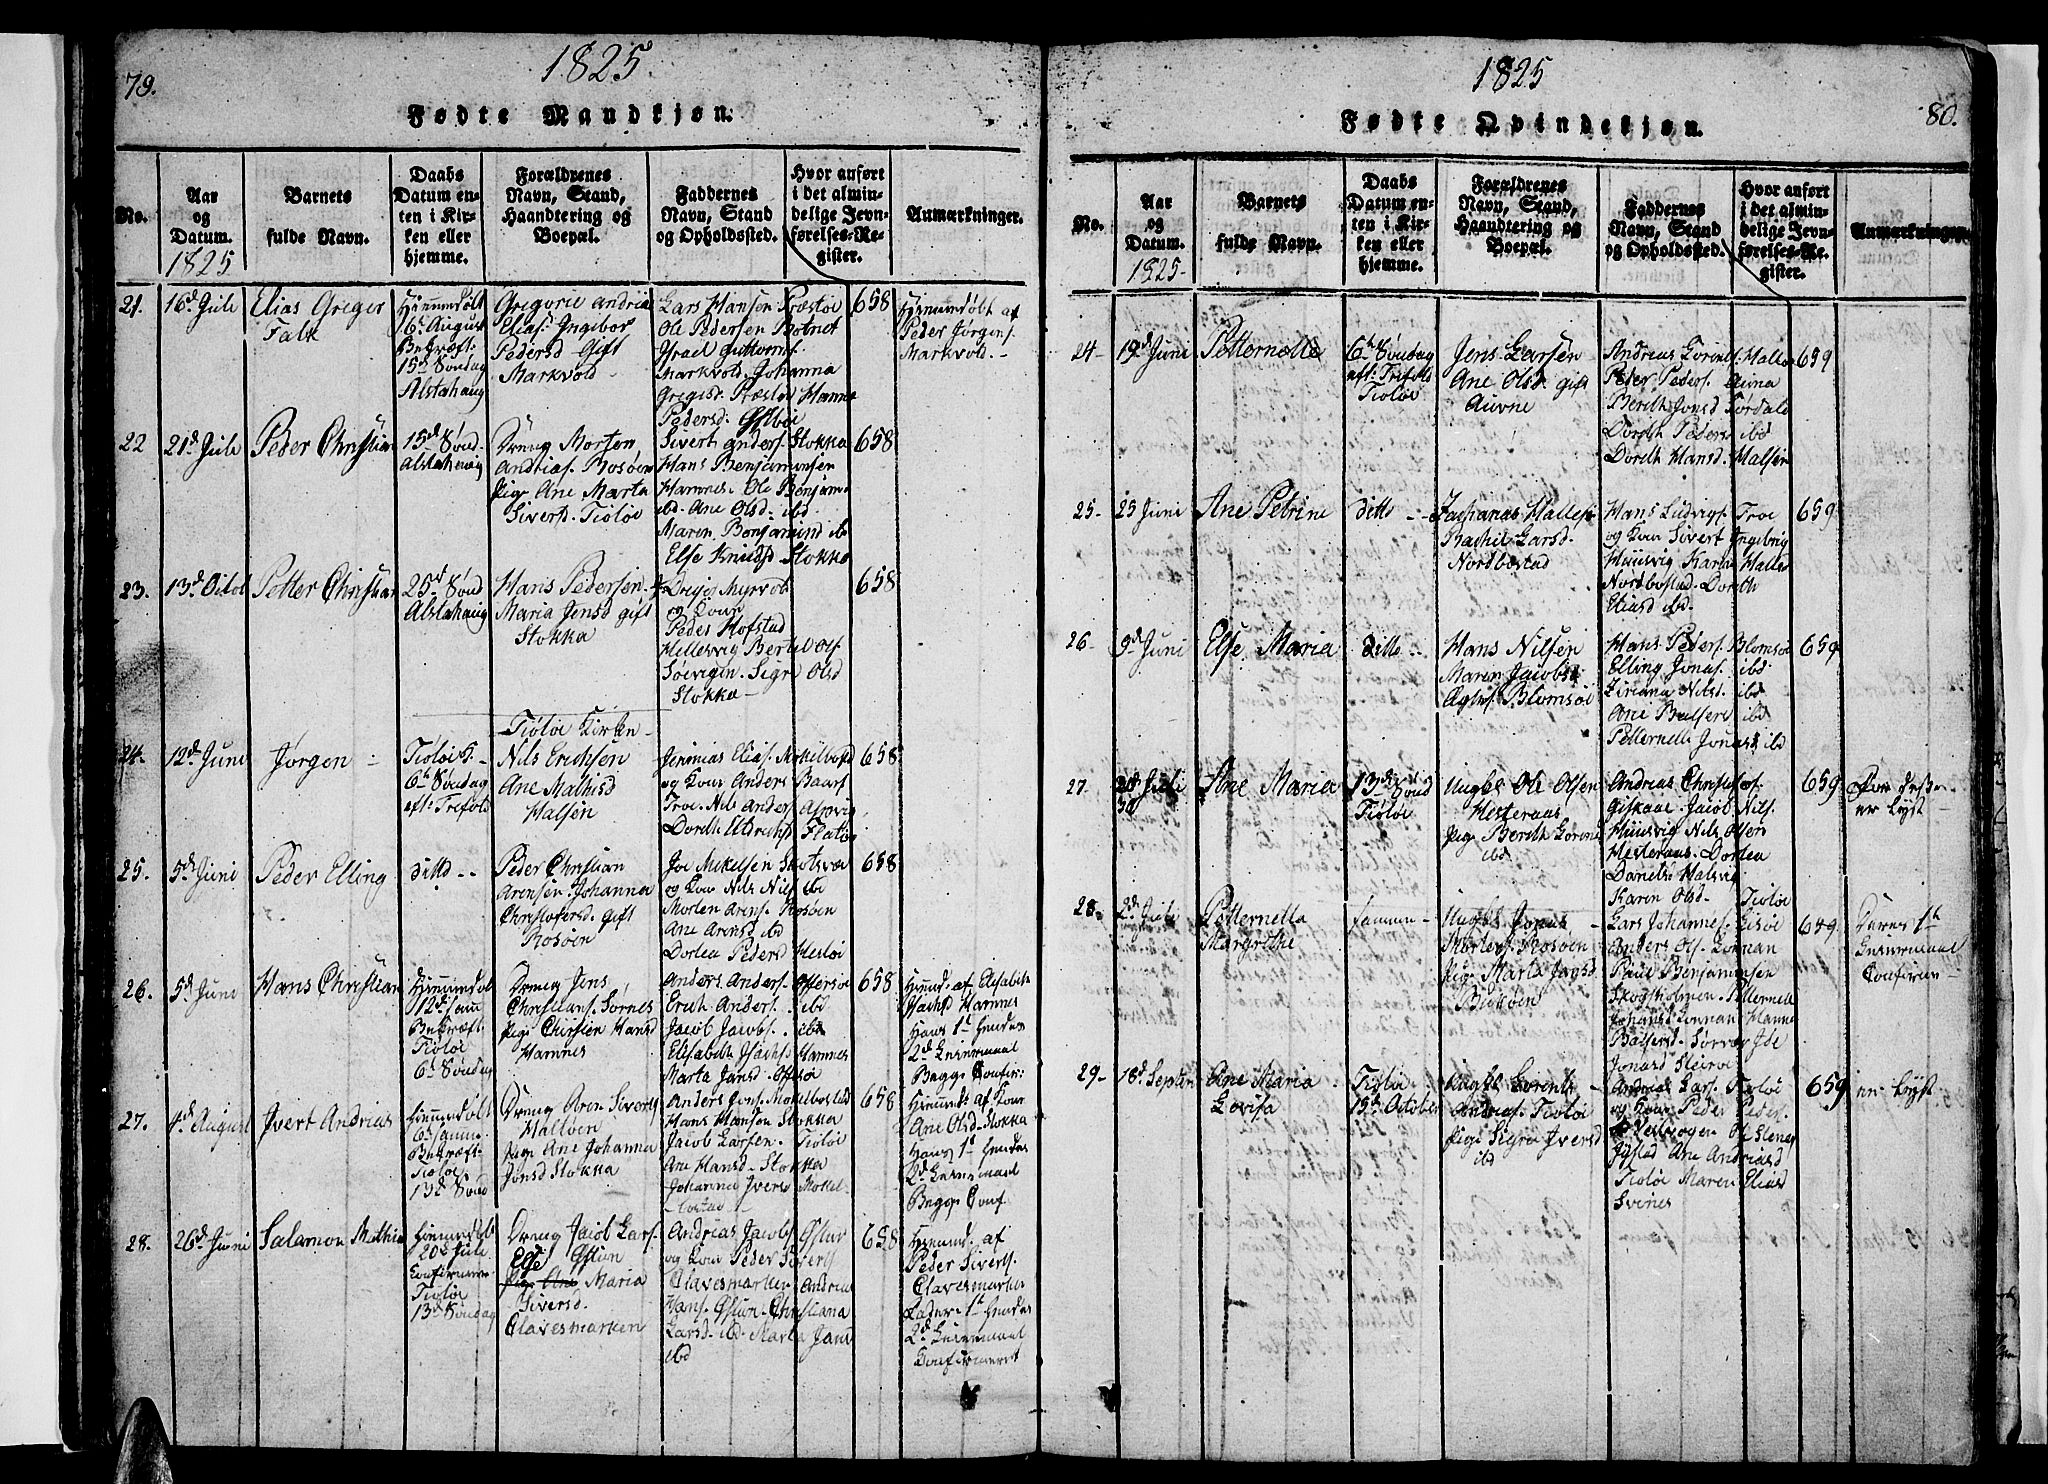 79.
1825.
Fødte Mandkjøn.
No.
Aar
og
Datum.
1825
Barnets
fulde Navn.
Daabs
Datum en-
ten i Kir-
ken eller
hjemme.
Forældrenes
Navn, Stand,
Haandtering og
Boepæl.
Faddernes
Navn, Stand
og Opholdssted.
Hvor anført
i det almin-
delige Jevn-
førelses-Re-
gister.
Anmærkninger.
21.
16d Juli
Elias Greger
Falk
Hiemmedøbt
6te August
Bekræft:
15d Søndag
Alstahaug
Gregorie Andria
Elias. Ingebor
Pedersd Gift
Markvold
Lars Hansen Præstøe
Ole Pedersen Botnet
Markvold. Johanna
Gregisd. Præstøe Hanna
Pedersd.
658
Hiemmedøbt af
Peder Jørgens.
Markvold.
22
21d Juli
Peder Christian
15d Sønd.
Alstahaug
Dreng Morten
Andrias. Rosøen
Pige Ane Marta
Siversd. Tiøtøe
Sivert Anders. Stokka
Hans Benjaminsen
Hamnes Ole Benjam.
ibd. Ane Olsd. ibd.
Maren Benjamind ibd
Else Knudsd Stokka
658
23.
13d Octob
Petter Christian
25d Sønd
Alstahaug
Hans Pedersen
Maria Jensd gift
Stokka
og Kone
Peder Hofstad
Hellesvig Bertel Ols.
Søevigen. Sigr Olsd
Stokka
658
Tiøtøe Kirken
24.
12d Juni
Jørgen
Tiøtøe K.
6te Søndag
eft: Trefold
Nils Erichsen
Ane Mathisd
Halsen
Jerimias Elias. Mekelbost
og Kone Anders Baars
Troe. Nils Anders
658
25.
5d Juni
Peder Elling
ditto
Peder Christian
Arensen. Johanna
Christofersd. gift
Rosøen
Joe Mekelsen Skotsvær
og Kone Nils Nils ibd
Morten Arens. Rosøen
Ane Arensd ibd
Dortea Pedersd Mesløe
658
26.
5d Juni
Hans Christian
Hiemmedøbt
12d samme
Bekræft:
Tiøtøe
6d Søndag
Dreng Jens
Christians. Sørnes
Pige Christien Hansd
Hamnes
Anders Anders. Offersøe
Erich Anders. ibd
Jacob Jacobs. ibd
Elisabeth Isachs Hamnes
Marta Jansd. Offersøe
658
Hiemd. af Elisabeth
Isachsd Hamnes
Hans 1st Hendes
2d Leiermaal
Begge Confir:
27.
4d August
Ivert Andrias
Hiemmedøbt
6 samme
Bekræft:
Tiøtøe
13d Sønd
Dreng Aren Siverts
Halsøen
Pige Ane Johanna
Jonsd Stokka
Anders Jons. Mekelbostad
Hans Hansen Stokka
Jacob Larsen. Tiøtøe
Ane Hansd. Stokka
Johanna Iversd Mekel-
bostad
658
Hiemmedt af Kone
Ane Olsd. Stokka
Hans 1st Hendes
2d Leiermaal
Begge Conf.
28.
26d Juni
Salamon Mathias
Hiemmedøbt
20d Juli
Confirmeret
Tiøtøe
13d Søndag
Dreng Jacob Lars.
Else Østun
Pige Ane Maria
Siversd.
Olavesmarken
Andrias Jacobs Østun
og Kone Peder Siverts
Olavesmarken Andrias
Hans. Østun. Christiana
Larsd. ibd. Marta Jansd
ibd
658
Hiemd. af
Peder Siverts
Olavesmarken
Faderen 1st Hendes
2d Leiermaal
Confirmeret
1825
80.
Fødte Qvindekjøn.
No.
Aar
og
Datum.
1825
Barnets
fulde Navn.
Daabs
Datum en-
ten i Kir-
ken eller
hjemme.
Forældrenes
Navn, Stand,
Haandtering og
Boepæl.
Faddernes
Navn, Stand
og Opholdssted.
Hvor anført
i det almin-
delige Jevn-
førelses-Re-
gister.
Anmærkninger
24
19d Juni
Petternelle
6te Søndag
eft: Trefold
Tiøtøe
Jens Larsen
Ane Olsd gift
Auvne
Peder Peders. Auna
Berith Jonsd Førdale
Dordth Peders ibd
Dordth Hansd. Halsen
659
25
23 Juni
Ane Petrine
ditto
Zacharias Halles.
Rachel Larsd.
Nordbøstad
Hans Ludvigs. Troe
og Kone Sivert Ingebrig
Huusvig Karn Halle
Nordbostad. Dorth
Eliasd ibd.
659
26
9d Juni
Else Maria
ditto
Hans Nilsen
Maren Jacobsd
Ægtes. Blomsøe
Hans Peders. Blomsøe
Elling Jonas. ibd
Ziriana Nilsd. ibd
Ane Balsers ibd
Petternelle Jonasd. ibd
659
27
30
Ane Maria
13d Sønd
Tiøtøe
Ungkl Ole Olsen
Hesteraas
Pige Berith Lorens
ibd
Andreas Christofs.
Giskaae. Jacob Nils.
Huusvig Nils Olsen
Hesteraas. Dortea
Danielsd Halsvig
Karen Olsd. Tiøtøe
659
er Lyst
28
2d Juli
Petternella
Margrethe
samme
Ungkl Jonas
Mortens. Rosøen
Pige Marta Jansd
Buksøen
Lars Johannes. Lisøe
Anders Ols. Lonnan
Paul Benjaminsen
Skogsholmen. Petternelle
Johansd Lonnan Hanna
Balsersd.
659
Deres 1st
Leiermaal
Confirm
29
18d Septem
Ane Maria
Lovisa
Tiøtøe
15de October
Ungkl Lorents
Andrias. Tiøtøe
Pige Sigra Iversd
ibd
Andreas Lars. Tiøtøe
og Kone Peder Peders.
Tiøtøe Maren Eliasd
Svines
659
er Lyst